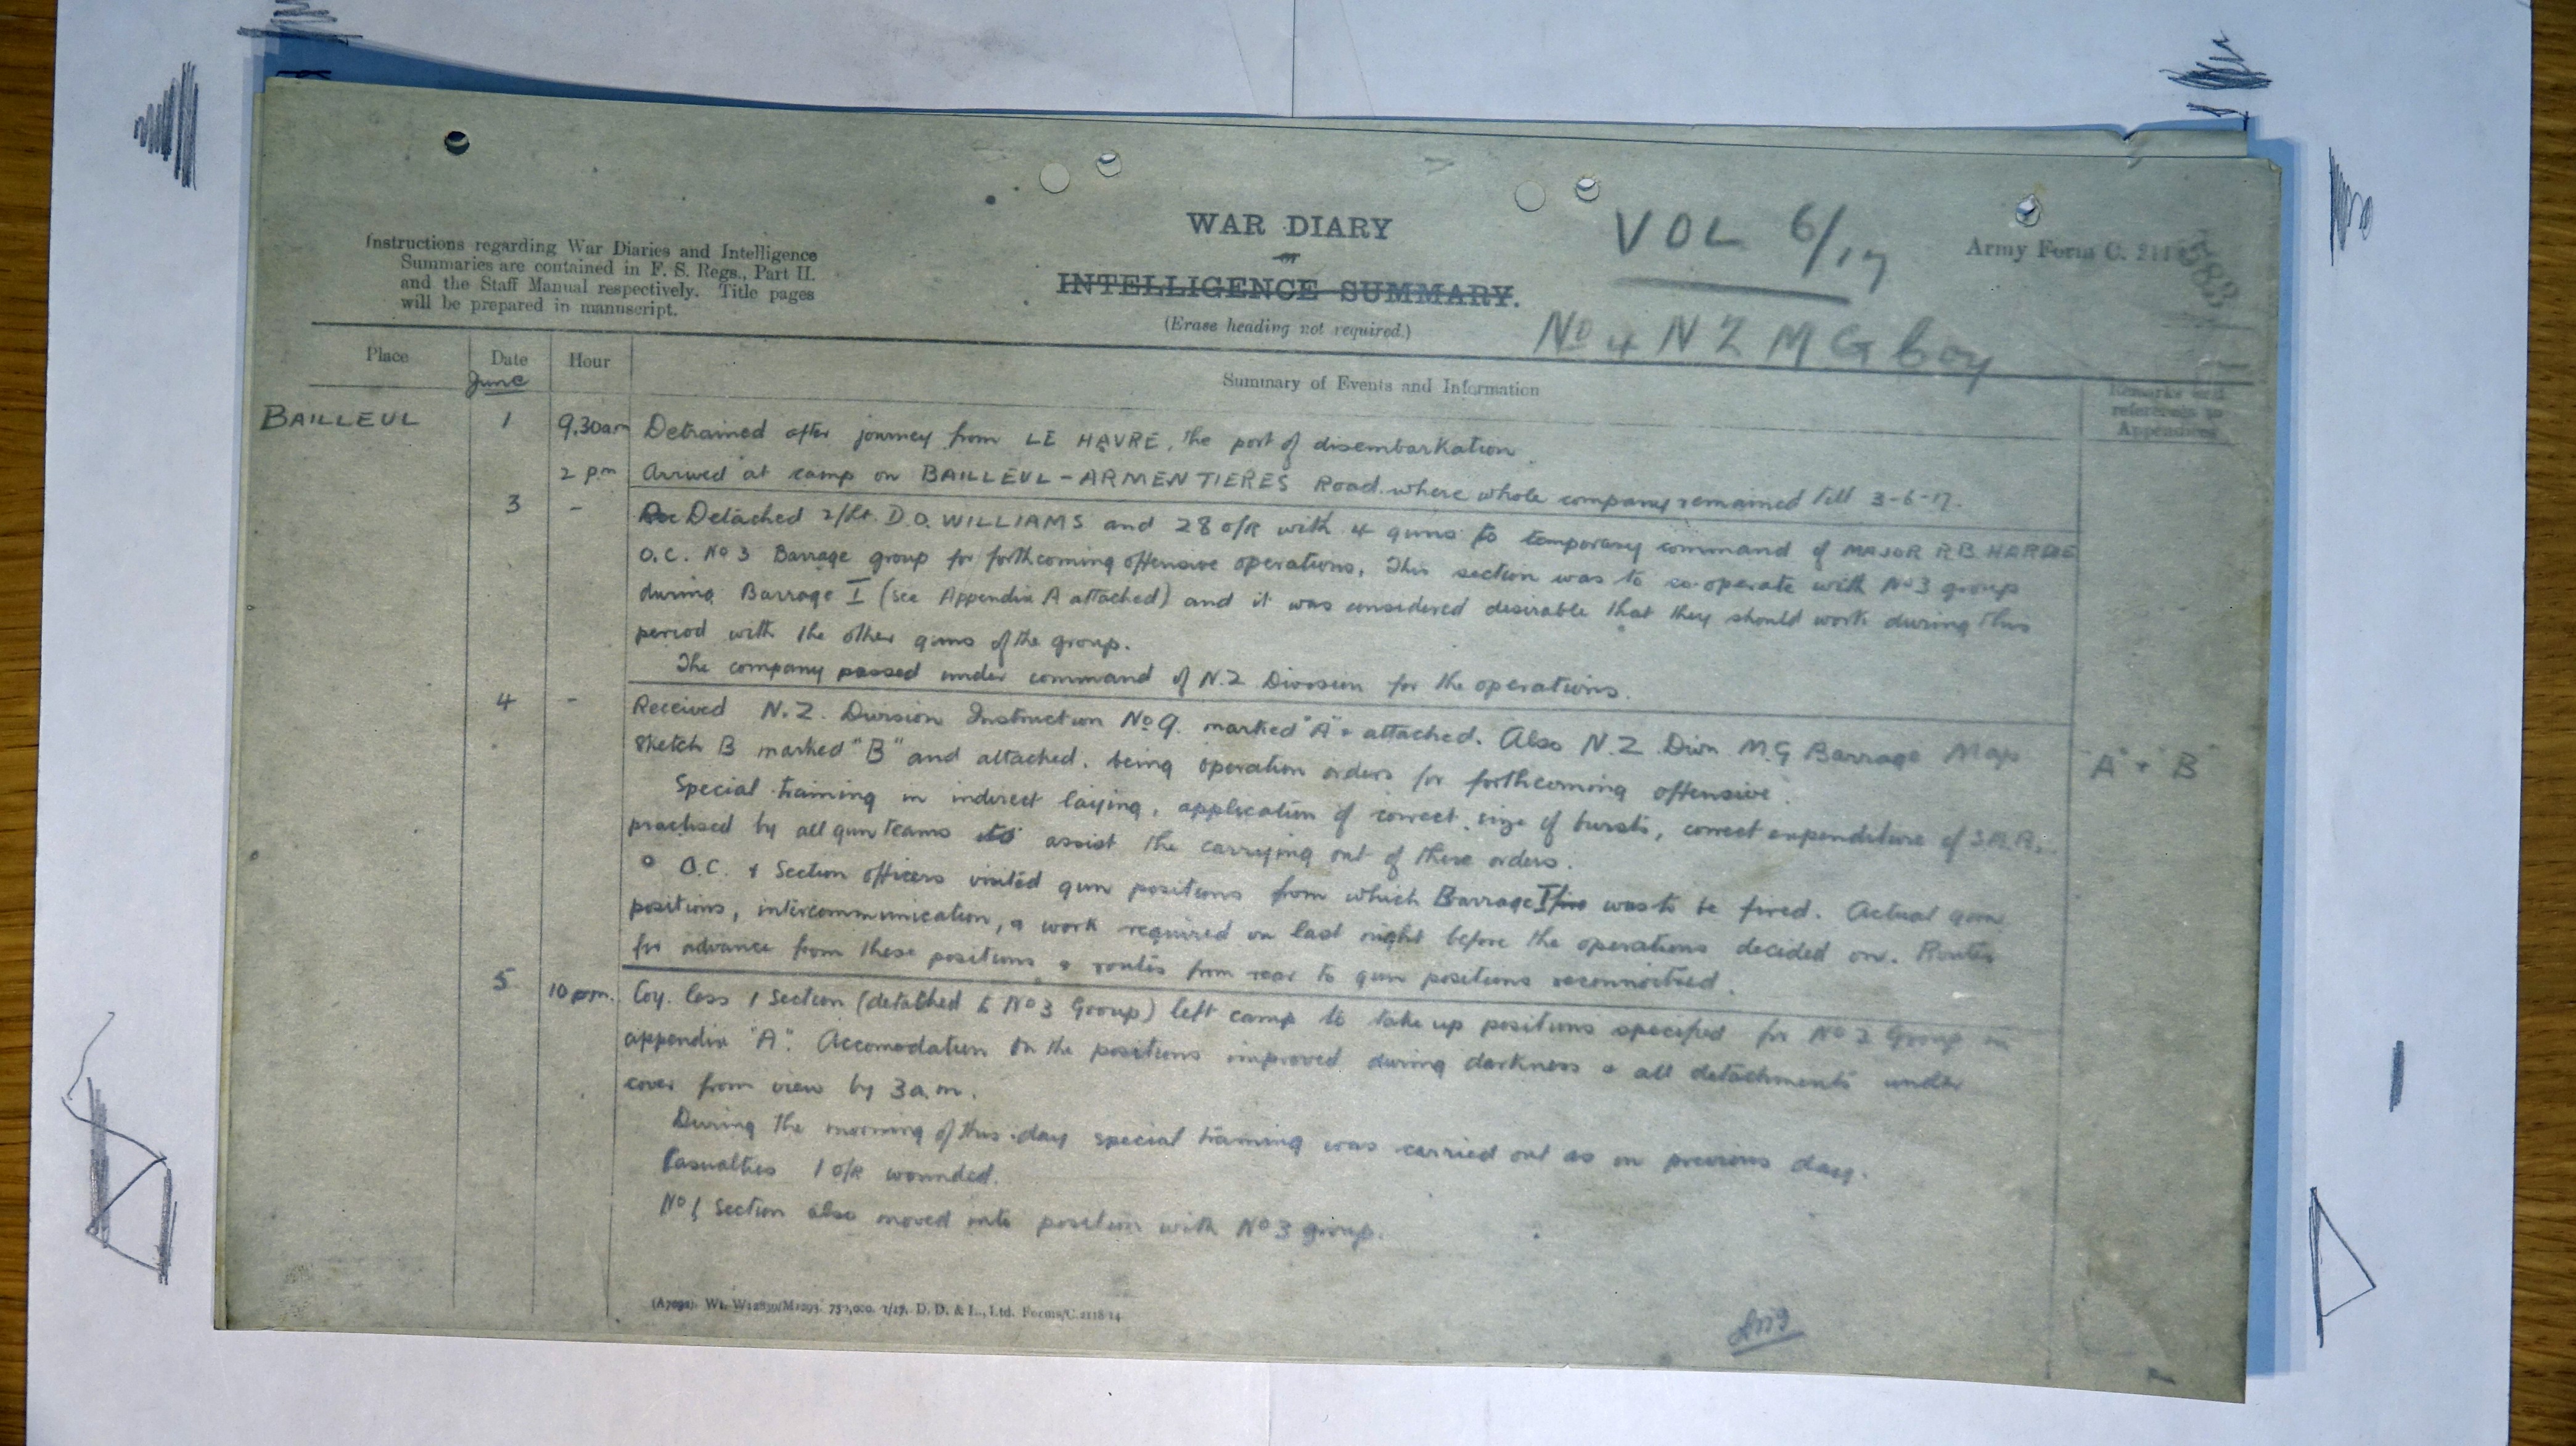 Instructions regarding War Diaries and Intelligence
Summaries are contained in F. S. Regs., Part II.
and the Staff Manual respectively. Title pages
will be prepared in manuscript.
WAR DIARY
or
INTELLIGENCE SUMMARY.
(Erase heading not required.)
VOL 6/17
No 4 N Z M G Coy
Army Form C. 2118
Place
Date
Hour
Summary of Events and Information
Remarks and
references to
Appendices
June
BAILLEUL 1 9.30am Detrained after journey from LE HAVRE, the port of disembarkation.
2 pm Arrived at camp on BAILLEUL - ARMENTIERES Road where whole company remained till 3-6-17.
3 - Detached 2/Lt. D.O. WILLIAMS and 28 o/R with 4 guns to temporary command of MAJOR R.B.
O.C. No 3 Barrage group for forthcoming offensive operations. This section was to co-operate with No 3 group
during Barrage I (see Appendix A attached) and it was considered desirable that they should work during this
period with the other guns of the group.
The company passed under command of N.Z Division for the operations.
4 - Received N.Z. Division Instruction No 9. marked "A" + attached. Also N.Z. Divn M.G Barrage Map
Sketch B marked "B" and attached, being operation orders for forthcoming offensive. "A" + "B"
Special training in indirect laying, application of correct size of bursts, correct expenditure of S.A.A.,
practised by all gun teams to assist the carrying out of these orders.
O.C. & Section officers visited gun positions from which Barrage I was to be fired. Actual gun
positions, intercommunication, & work required on last night before the operations decided on. Routes
for advance from these positions & routes from rear to gun positions reconnoitred.
5 10 pm. Coy. less 1 Section (detached to No 3 Group) left camp to take up positions specified for No 2 Group in
appendix "A". Accomodation in the positions improved during darkness & all detachments under
cover from view by 3 a.m.
During the morning of this day special training was carried out as on previous day.
Casualties 1 o/R wounded.
No 1 Section also moved into position with No 3 group.
(A7092). Wt. W12839/M1293. 752,000. 1/17. D. D. & L., Ltd. Forms/C.2118/14